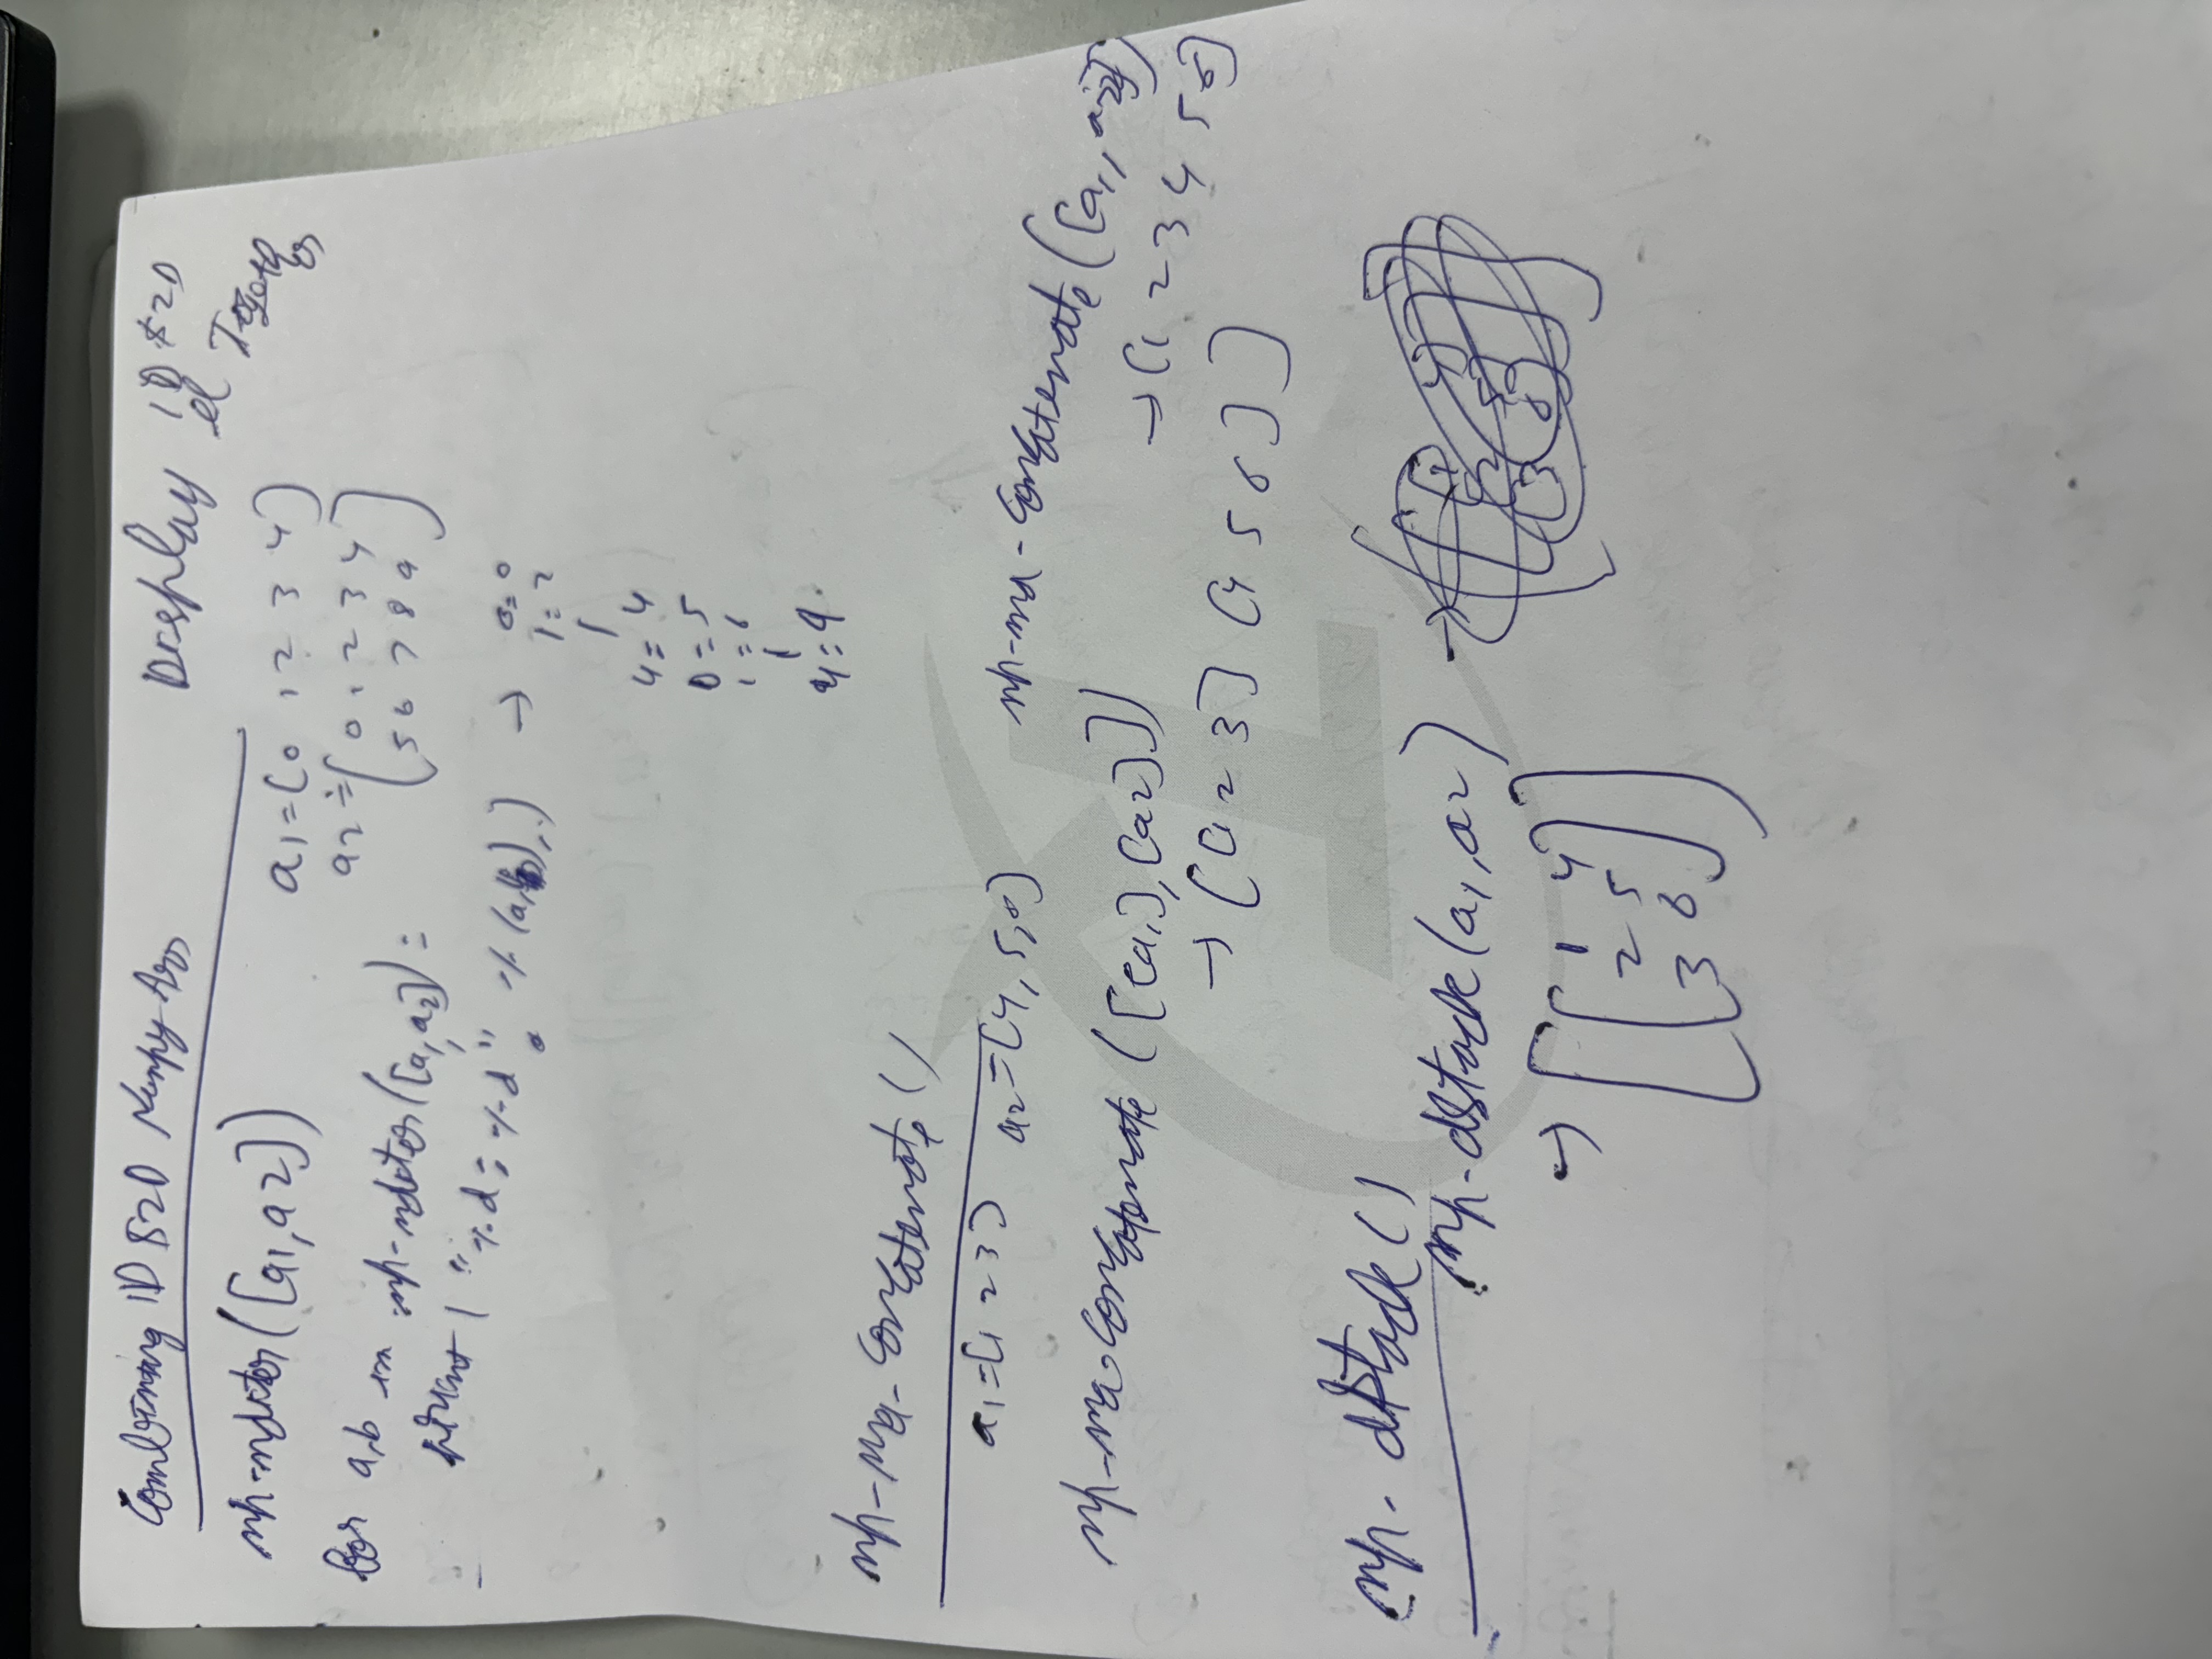 Combining 1D & 2D Numpy Arrs
Display 1D & 2D
el Together
np.nditer([a1,a2])
a1=[0 1 2 3 4]
a2=[0 1 2 3 4
5 6 7 8 9]
for a,b in np.nditer([a1,a2]):
print("%d:%d" %(a,b),)
→ 0:0
1:2
|
4:4
0:5
1:6
|
4:9
np.ma.concatenate()
a1=[1 2 3] a2=[4,5,6]
np.ma.concatenate([[a1],[a2]])
→ [[1 2 3] [4 5 6]]
np.ma.concatenate([a1,a2])
→ [1 2 3 4 5 6]
np.dstack()
np.dstack(a1,a2)
→ [[1 4
2 5
3 6]]